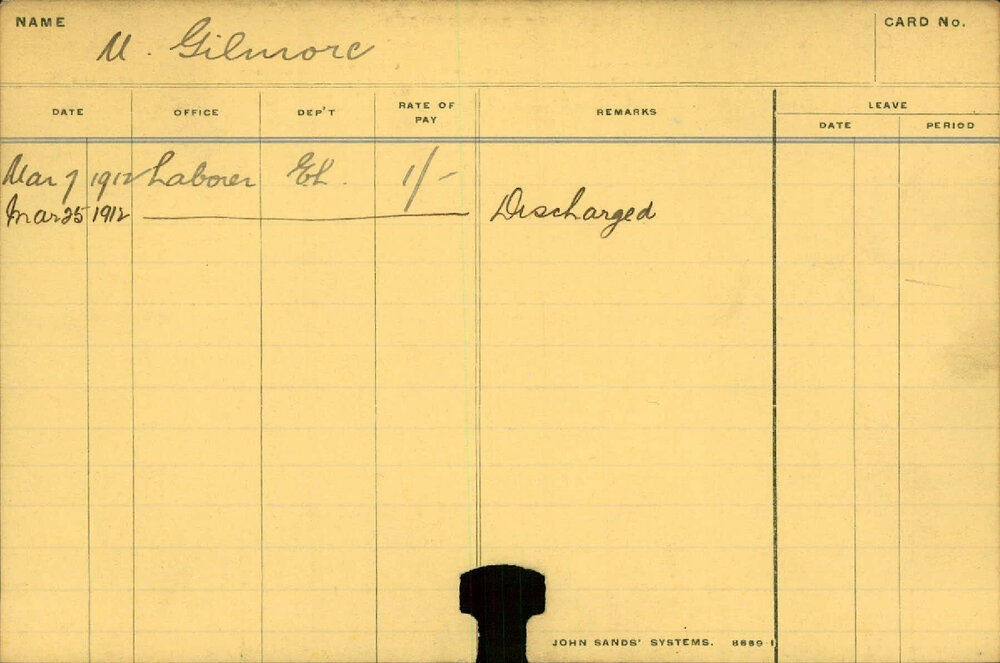 NAME
M. Gilmore
CARD No.
DATE OFFICE DEP'T RATE OF PAY REMARKS LEAVE
DATE PERIOD
Mar 7 1912 Laborer EL. 1/-
Mar 25 1912 Discharged
JOHN SANDS' SYSTEMS. 8669 1